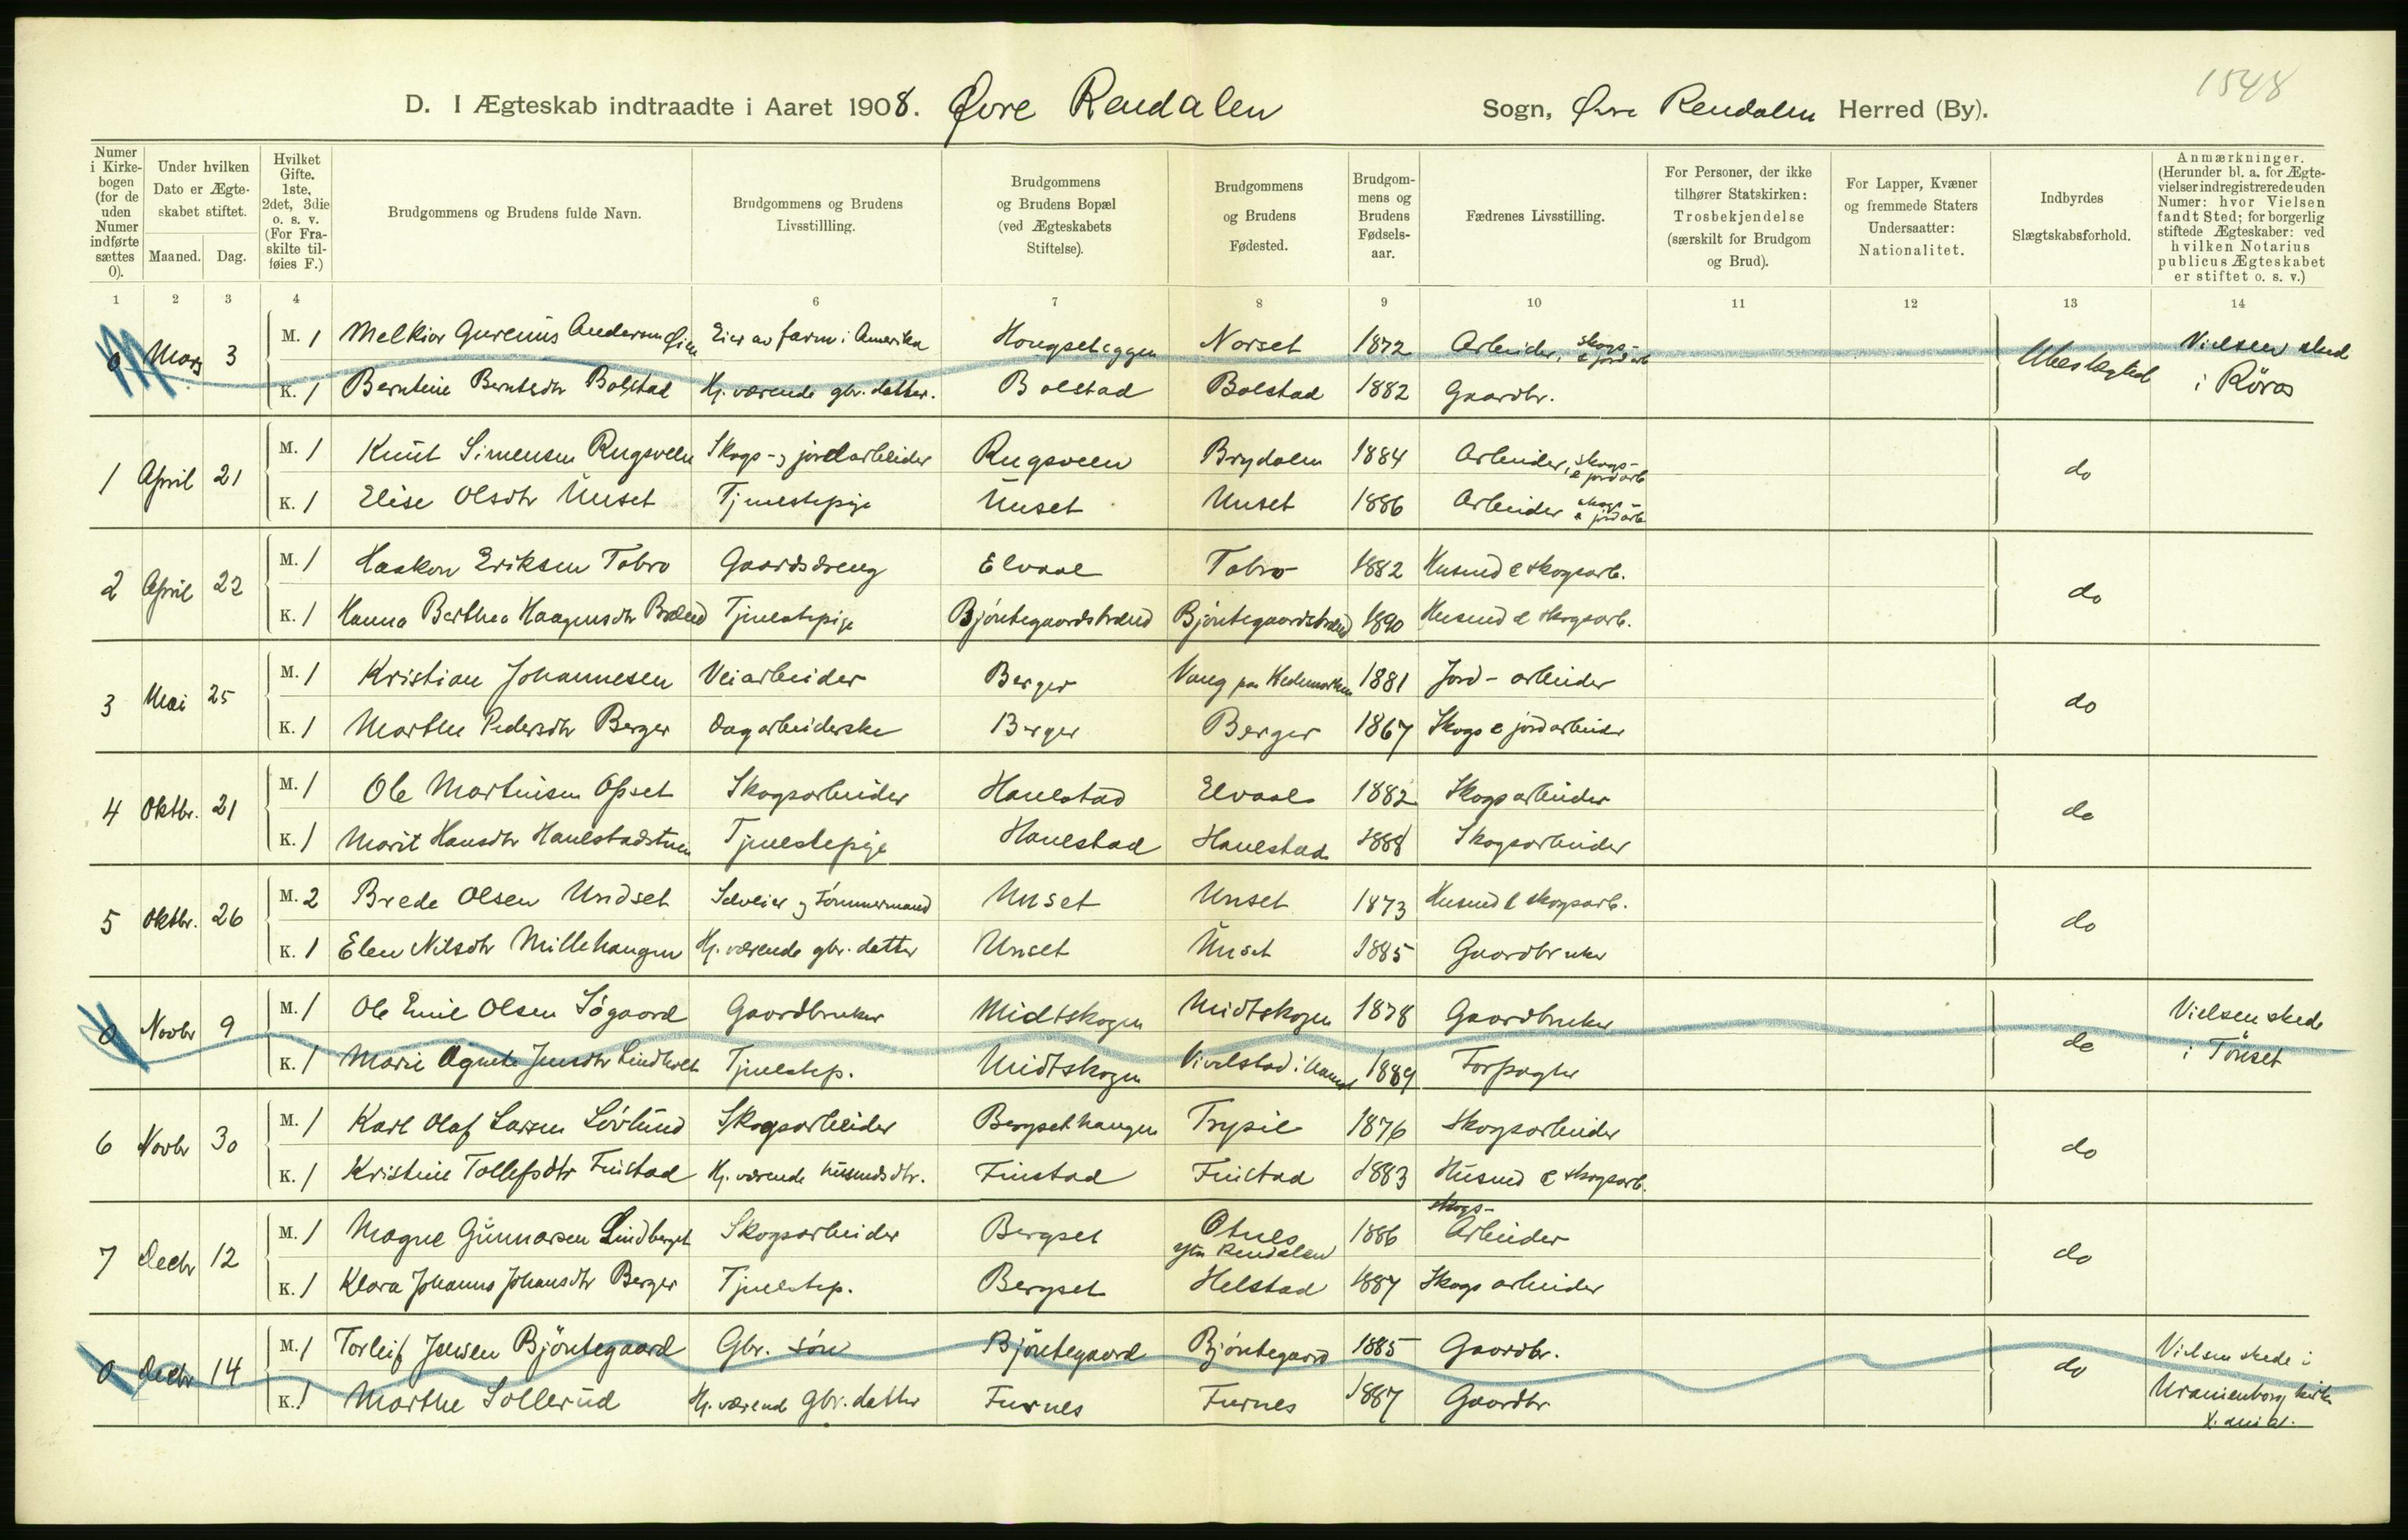 1548
D. I Ægteskab indtraadte i Aaret 1908. Øvre Rendalen Sogn, Øvre Rendalen Herred (By).
Numer i Kirkebogen (for de uden Numer indførte sættes 0).
Under hvilken Dato er Ægteskabet stiftet. Maaned. Dag.
Hvilket Gifte. 1ste, 2det, 3die o. s. v. (For Fraskilte tilføies F.)
Brudgommens og Brudens fulde Navn.
Brudgommens og Brudens Livsstillling.
Brudgommens og Brudens Bopæl (ved Ægteskabets Stiftelse).
Brudgommens og Brudens Fødested.
Brudgommens og Brudens Fødselsaar.
Fædrenes Livsstilling.
For Personer, der ikke tilhører Statskirken: Trosbekjendelse (særskilt for Brudgom og Brud).
For Lapper, Kvæner og fremmede Staters Undersaatter: Nationalitet.
Indbyrdes Slægtskabsforhold.
Anmærkninger. (Herunder bl. a. for Ægtevielser indregistrerede uden Numer: hvor Vielsen fandt Sted; for borgerlig stiftede Ægteskaber: ved hvilken Notarius publicus Ægteskabet er stiftet o. s. v.)
1 2 3 4 6 7 8 9 10 11 12 13 14
0 Mars 3 M. 1 Melkior Gurenius Andersen Eier av farm i Amerika Hongseteggen Norset 1872 Arbeider, skogs- & jord arb Ubeslægted Vielsen sked
K. 1 Berntine Berntsdtr Bolstad Hj. værende gbr. datter. Bolstad Bolstad 1882 Gaardbr. i Röros
1 April 21 M. 1 Knut Simensen Rugsveen Skogs- og jordarbeider Rugsveen Brydalen 1884 Arbeider, skogs- & jord arb do
K. 1 Elise Olsdtr Unset Tjenestepige Unset Unset 1886 Arbeider skogs- & jord arb
2 April 22 M. 1 Haakon Eriksen Tabro Gaardsdreng Elvaal Tabro 1882 Husmd & skogsarb. do
K. 1 Hanna Berthea Haagensdtr Brænd Tjenestepige Bjöntegaardsbrænd Bjöntegaardsbrænd 1890 Husmd & skogsarb.
3 Mai 25 M. 1 Kristian Johannesen Veiarbeider Berger Vang paa Hedemarken 1881 Jord-arbeider do
K. 1 Marthe Pedersdtr Berger Dagarbeiderske Berger Berger 1867 Skogs & jordarbeider
4 Oktbr. 21 M. 1 Ole Martinsen Opset Skogsarbeider Hanestad Elvaal 1882 Skogsarbeider do
K. 1 Marit Hansdtr Hanestadstuen Tjenestepige Hanestad Hanestad 1888 Skogsarbeider
5 Oktbr. 26 M. 2 Brede Olsen Undset Selveier og Tömmermand Unset Unset 1873 Husmd & skogsarb. do
K. 1 Elen Nilsdtr Millehaugen Hj. værende gbr. datter Unset Unset 1885 Gaardbruker
0 Novbr 9 M. 1 Ole Emil Olsen Sögaard Gaardbruker Midtskogen Midtskogen 1878 Gaardbruker do Vielsen skede
K. 1 Marie Agnete Jensdtr Lindholt Tjenestep. Midtskogen 1889 Forpagter i Tönset
6 Novbr 30 M. 1 Karl Olaf Larsen Lövlund Skogsarbeider Bergsethaugen Trysil 1876 Skogsarbeider do
K. 1 Kristine Tollefsdtr Finstad Hj. værende husmdsdtr. Finstad Finstad 1883 Husmd & skogsarb.
7 Decbr 12 M. 1 Magne Gunnarsen Lindberget Skogsarbeider Bergset Otnes ytre Rendalen 1886 skogs- Arbeider do
K. 1 Klara Johanna Johansdtr Berger Tjenestep. Bergset Helstad 1887 Skogsarbeider
0 Decbr 14 M. 1 Torleif Jensen Bjöntegaard Gbr. sön Bjöntegaard Bjöntegaard 1885 Gaardbr. do Vielsen skede i
K. 1 Marthe Sollerud Hj. værende Gbr. datter Furnes Furnes 1887 Gaardbr Uranienborg kirke
X.ania.